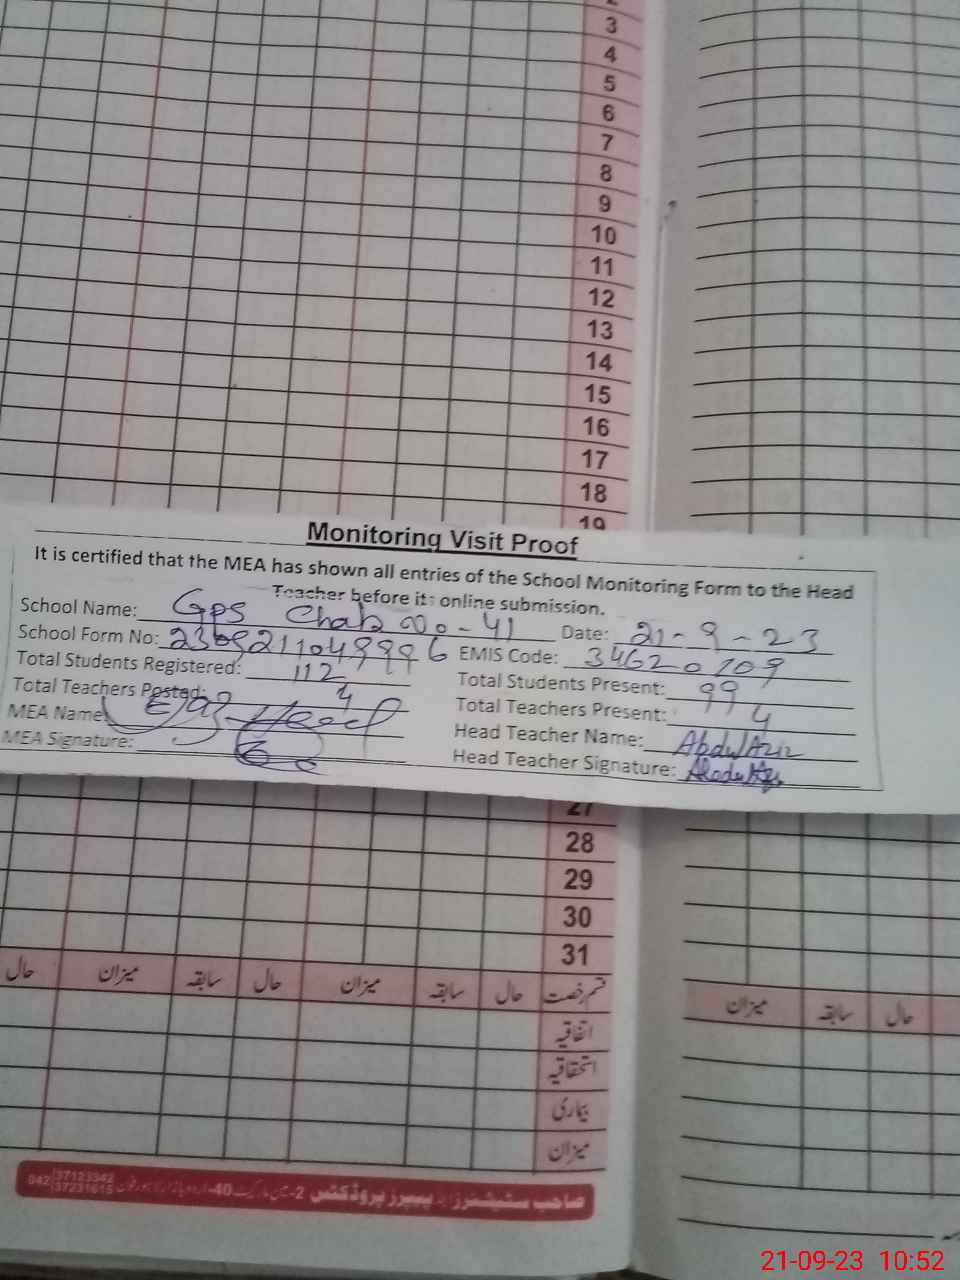 3
4
5
6
7
8
9
10
11
12
13
14
15
16
17
18
19
Monitoring Visit Proof
It is certified that the MEA has shown all entries of the School Monitoring Form to the Head
Teacher before its online submission.
School Name: GPS Chak No - 41 Date: 21-9-23
School Form No: EMIS Code: 34620109
Total Students Registered: 112 Total Students Present: 99
Total Teachers Posted: 4 Total Teachers Present: 4
MEA Name: Head Teacher Name: Abdul Aziz
MEA Signature: Head Teacher Signature:
27
28
29
30
31
قسم رخصت حال سابقہ میزان حال سابقہ میزان حال
میزان سابقہ حال
اتفاقیہ
استحقاقیہ
بیماری
میزان
صاحب سٹیشنرز اینڈ پیپرز پروڈکٹس 2-مین مارکیٹ 40-اردو بازار لاہور فون 042 37123342 37231615
21-09-23 10:52